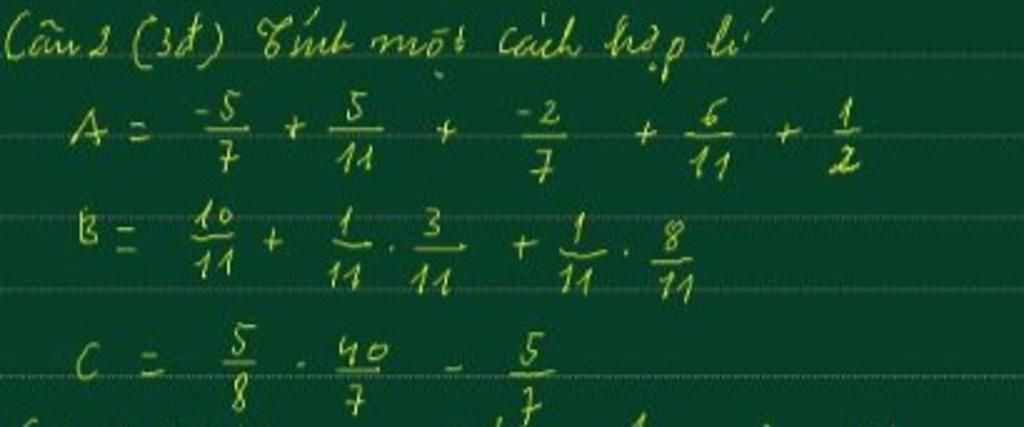 Câu 2 (3đ) Tính một cách hợp lí
A = -5/7 + 5/11 + -2/7 + 6/11 + 1/2
B = 10/11 + 1/11 . 3/11 + 1/11 . 8/11
C = 5/8 . 40/7 - 5/7